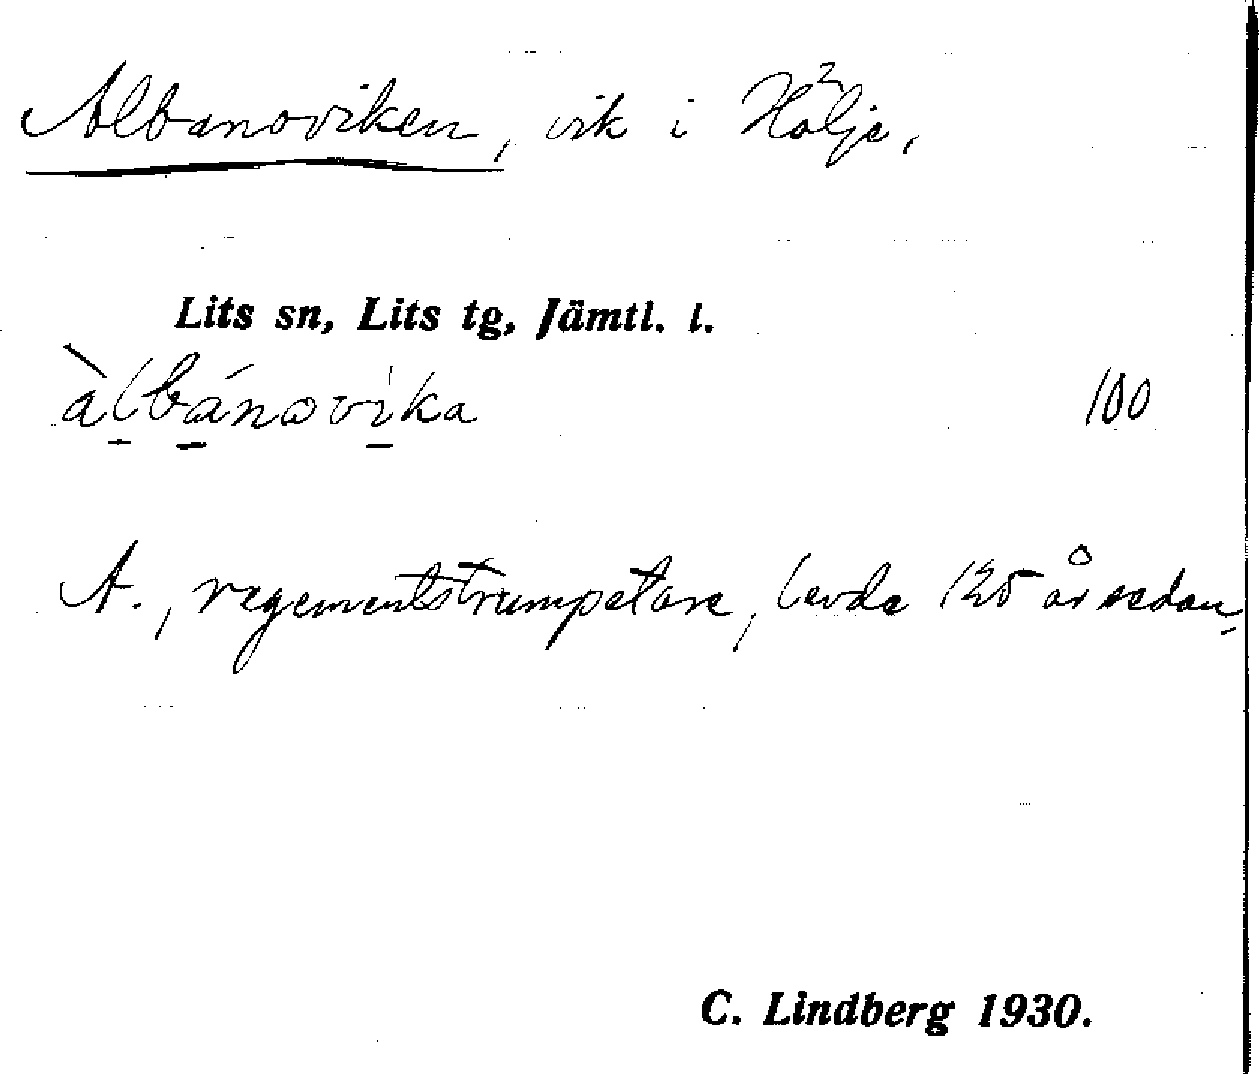 Albanoviken, vik i Hölje,
Lits sn, Lits tg, Jämtl. l.
àlbánovika 100
A., regementstrumpetare, levde 125 år sedan,
C. Lindberg 1930.